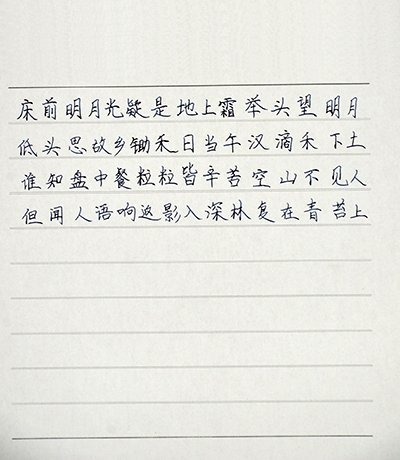 床前明月光疑是地上霜举头望明月
低头思故乡锄禾日当午汉滴禾下土
谁知盘中餐粒粒皆辛苦空山不见人
但闻人语响返影入深林复在青苔上